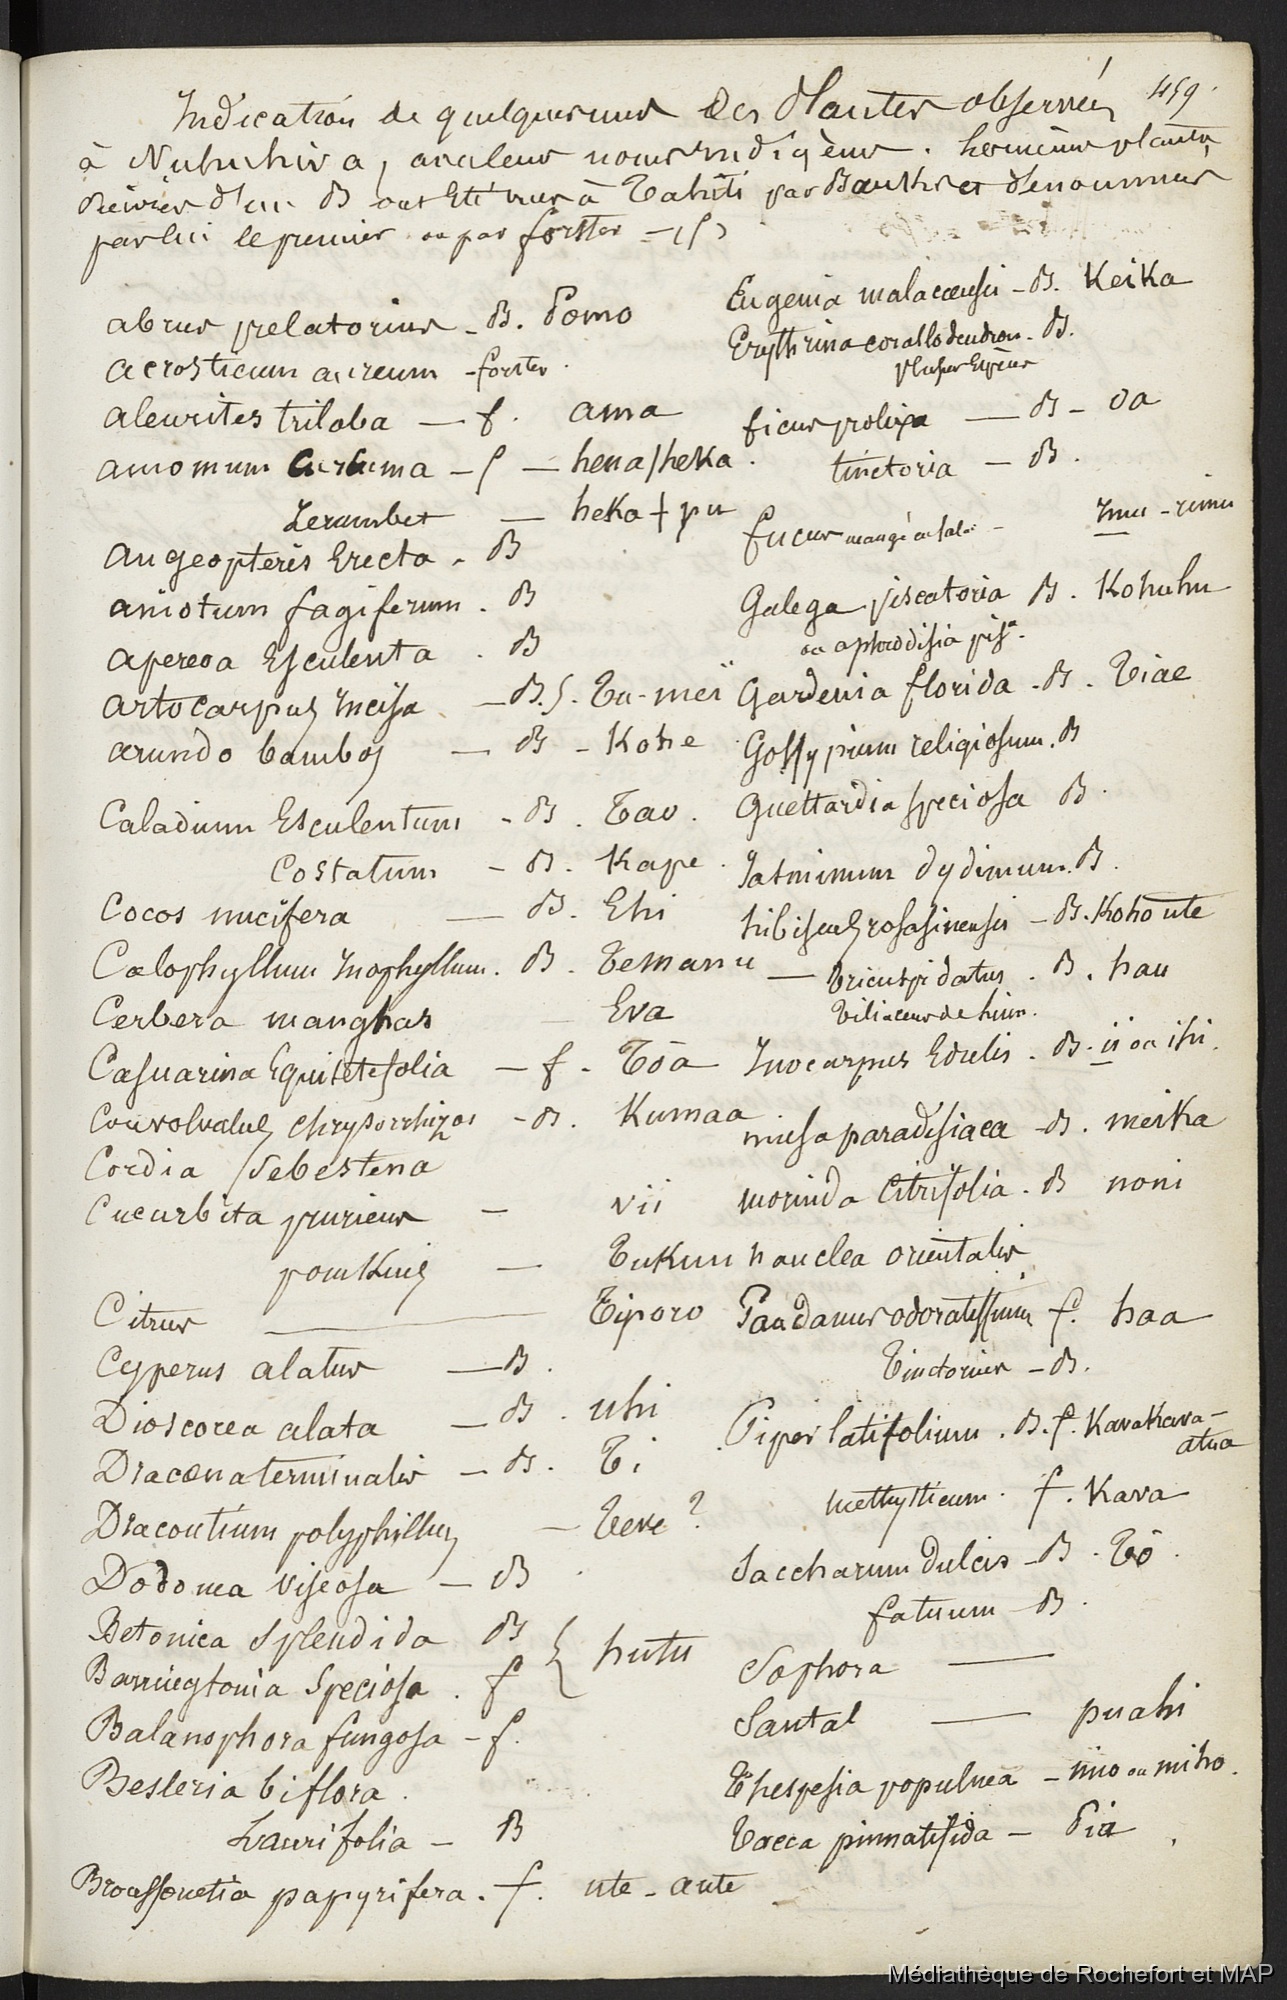 459
Indication de quelques unes Des Plantes observées
à Nukuhiva, avec leurs noms indigènes. Les mêmes plantes
suivies d'un B ont été vues à Tahiti par Banks et dénommées
par lui le premier ou par forster – (f)
abrus precatorius – B. Pomo
acrosticum aureum – forster.
aleurites triloba — f. ama
amomum Curcuma – f — hena/heka.
Zerumbet — heka + pu
angeopteris Erecta. B
aniotum fagiferum. B
apereoa Esculenta. B
artocarpus Incisa — B. f. Tu-meï
arundo bambos — B – Kohe
Caladium Esculentum - B. Tao.
Costatum – B. Kape.
Cocos nucifera — B. Ehi
Calophyllum Inophyllum. B. Temanu
Cerbera manghas — Eva
Casuarina Equisetifolia — f. Tôa
Convolvulus Chrysorrhizos – B. Kumaa
Cordia Sebestena
Cucurbita pruriens – vii
pomkins — Tukuu
Citrus — Tiporo
Cyperus alatus — B.
Dioscorea alata — B. uhi
Dracœna terminalis — B. Ti
Dracontium polyphillus — Teve ?
Dodonea viscosa — B.
Betonica Splendida B
Barringtonia Speciosa. f { hutu
Balanophora fungosa – f.
Besleria biflora.
Laurifolia – B
Broussonetia papyrifera. f. ute – aute
Eugenia malaccensis – B. Keika
Erythrina corallodendron. B.
plusrs Espèces
ficus prolixa — B – Oa
tinctoria — B.
fucus mangé en salade – Imu – rimu
Galega piscatoria B. Kohuhu
ou aphrodisia pisa.
Gardenia florida – B. Tiae
Gossypium religiosum. B
Guettardia speciosa B.
Jasminum dydimum. B.
hibiscus rosasinensis – B. Kohoute
— Tricuspidatus. B. hau
Tiliaceus de linn.
Inocarpus Edulis. B. ii ou ihi.
musa paradisiaca – B. meika
morinda Citrifolia. B noni
nauclea orientalis
Pandanus odoratissimus f. haa
Tinctorius – B.
Piper latifolium. B. f. Kavakava-
atua
methysticum. f. Kava
Saccharum dulcis – B. Tô.
fatuum – B.
Sophora —
Santal — puahi
Thespesia populnea – mio ou miho.
Tacca pinnatifida – Pia
Médiathèque de Rochefort et MAP